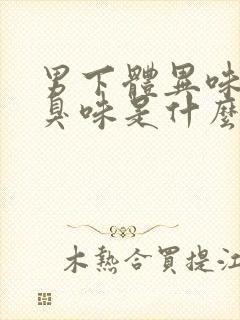 男下體異味
臭味是什麼
木熱合買提江